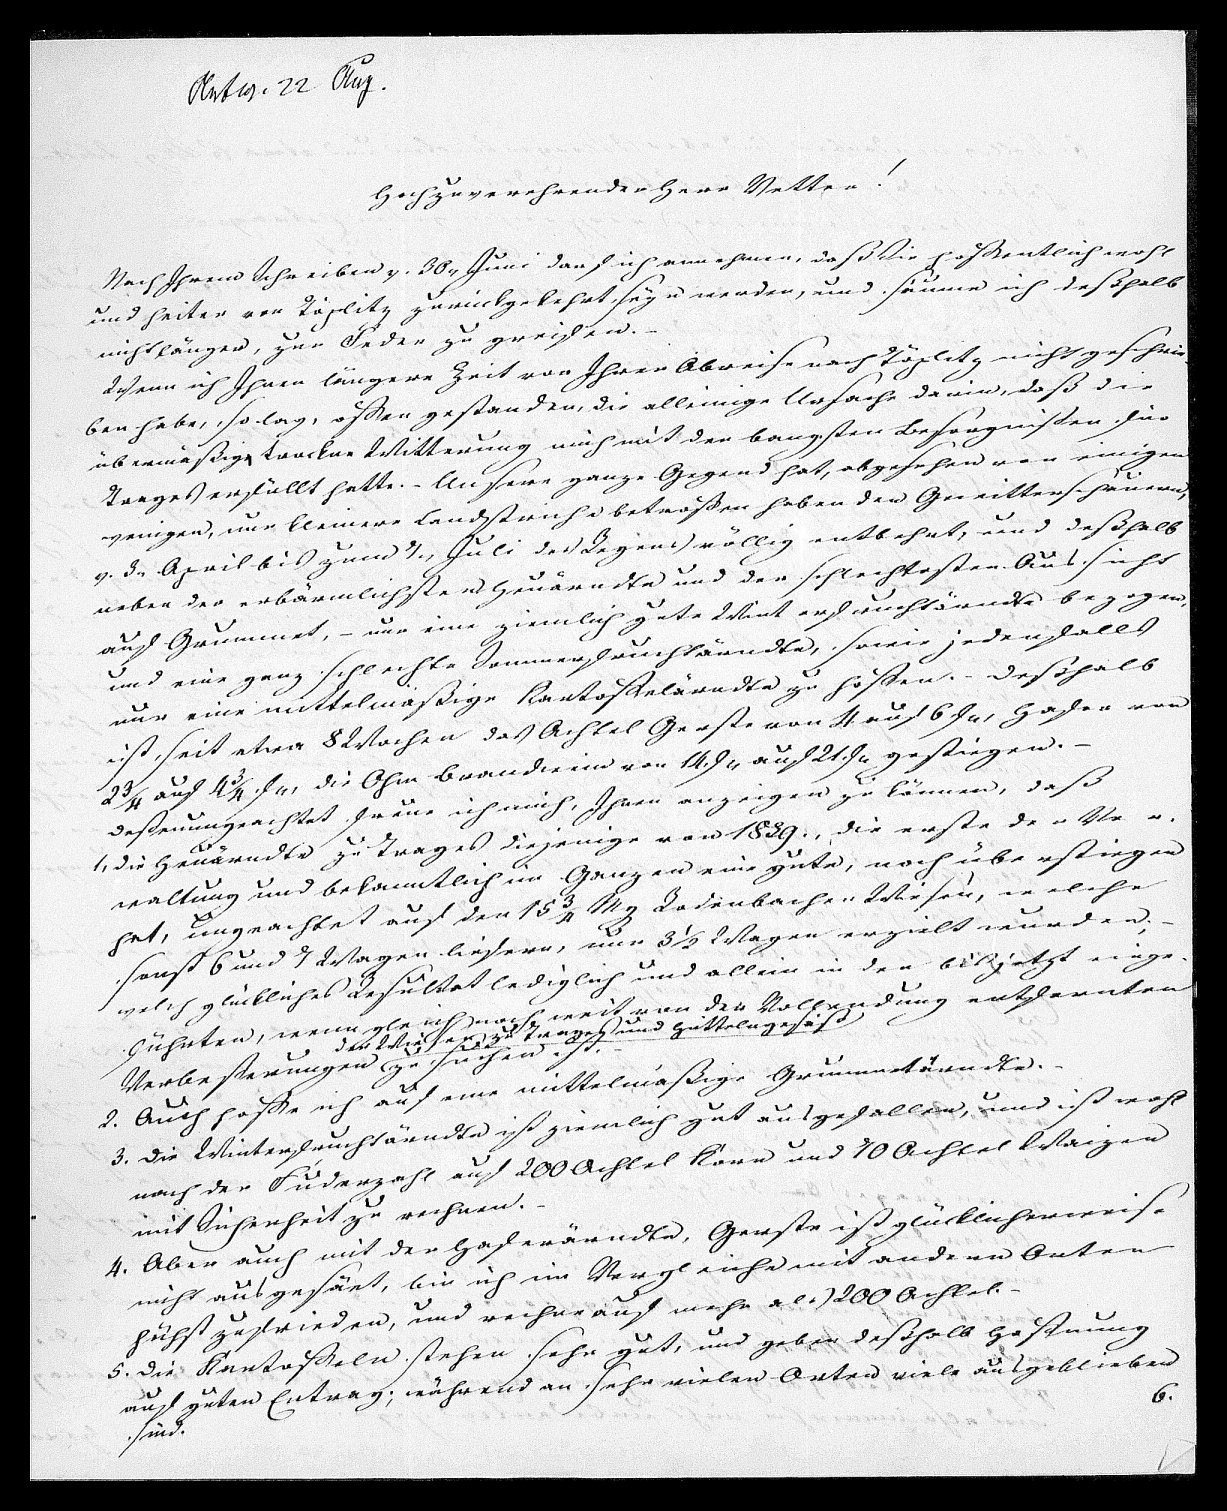 Antw. 22 Aug.
Hochzuverehrender Herr Vetter!
Nach Ihrem Schreiben v. 30n Juni darf ich annehmen, daß Sie hoffentlich wohl
und heiter von Töplitz zurückgekehrt seyn werden, und säume ich deßhalb
nicht länger, zur Feder zu greifen. -
Wenn ich Ihnen längere Zeit vor Ihrer Abreise nach Töplitz nicht geschrie-
ben habe, so lag, offen gestanden, die alleinige Ursache darin, daß die
übermäßige trockne Witterung mich mit den bangsten Besorgnißen für
Trages erfüllt hatte. - Unsere ganze Gegend hat, abgesehen von einigen
wenigen, nur kleinere Landstriche betroffen habenden Gewitterschauern,
v. d. April bis zum 7. Juli des Regens völlig entbehrt, und deßhalb
neben der erbärmlichsten Heuärndte und der schlechtesten Aussicht
auf Grummet, - nur eine ziemlich gute Winterfruchtärndte bezogen,
und eine ganz schlechte Sommerfruchtärndte, sowie jedenfalls
nur eine mittelmäßige Kartoffelärndte zu hoffen. - Deßhalb
ist seit etwa 8 Wochen das Achtel Gerste von 4 auf 6 f., Hafer von
2¾ auf 4¾ f., die Ohm Brandwein von 14 f. auf 21 f. gestiegen. -
Deßenungeachtet freue ich mich, Ihnen anzeigen zu können, daß
1, die Heuärndte zu Trages diejenige von 1839., die erste der Ver-
waltung und bekanntlich im Ganzen eine gute, noch überstiegen
hat, ungeachtet auf den 15¾ Mg Rodenbacher Wiesen, welche
sonst 6 und 7 Wagen liefern, nur 3½ Wagen erzielt wurden, -
welch glückliches Resultat lediglich und allein in den bis jetzt einge-
führten, wenn gleich noch weit von der Vollendung entfernten
der Wiesen zu Trages und Hüttelngesäß
Verbeßerungen zu suchen ist. -
2. Auch hoffe ich auf eine mittelmäßige Grummetärndte. -
3. Die Winterfruchtärndte ist ziemlich gut ausgefallen, und ist wohl
nach der Fuderzahl auf 200 Achtel Korn und 70 Achtel Waizen
mit Sicherheit zu rechnen. -
4. Aber auch mit der Haferärndte, Gerste ist glücklicherweise
nicht ausgesäet, bin ich im Vergleiche mit andern Orten
höchst zufrieden, und rechne auf mehr als 200 Achtel. -
5. Die Kartoffeln stehen sehr gut, und geben deßhalb Hoffnung
auf guten Ertrag; während an sehr vielen Orten viele ausgeblieben
sind.
6.